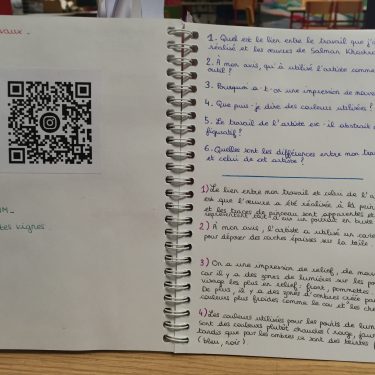 vaux.
M_
tes vignes
1. Quel est le lien entre le travail que j'
réalisé et les œuvres de Salman Khoshroo
2. A mon avis, qu'a utilisé l'artiste comme
outil ?
3. Pourquoi a-t-on une impression de
4. Que puis-je dire des couleurs utilisées ?
5. Le travail de l'artiste est-il abstrait
figuratif ?
6. Quelles sont les différences entre mon
et celui de cet artiste ?
1) Le lien entre mon travail et celui de l'a
est que l'œuvre a été réalisée à la
et les traces de pinceau sont apparentes et
représentent un portrait en buste
2) A mon avis, l'artiste a utilisé un
pour déposer des taches épaisses sur la toile.
3) On a une impression de relief, de
car il y a des zones de lumières sur les
visage les plus en relief : front, pommettes
De plus, il y a des zones d'ombres créée par
couleurs plus froides comme le cou et les
4) Les couleurs utilisées pour les points de
sont des couleurs plutôt chaudes (rouge,
tandis que pour les ombres ce sont des teintes
(bleu, noir).